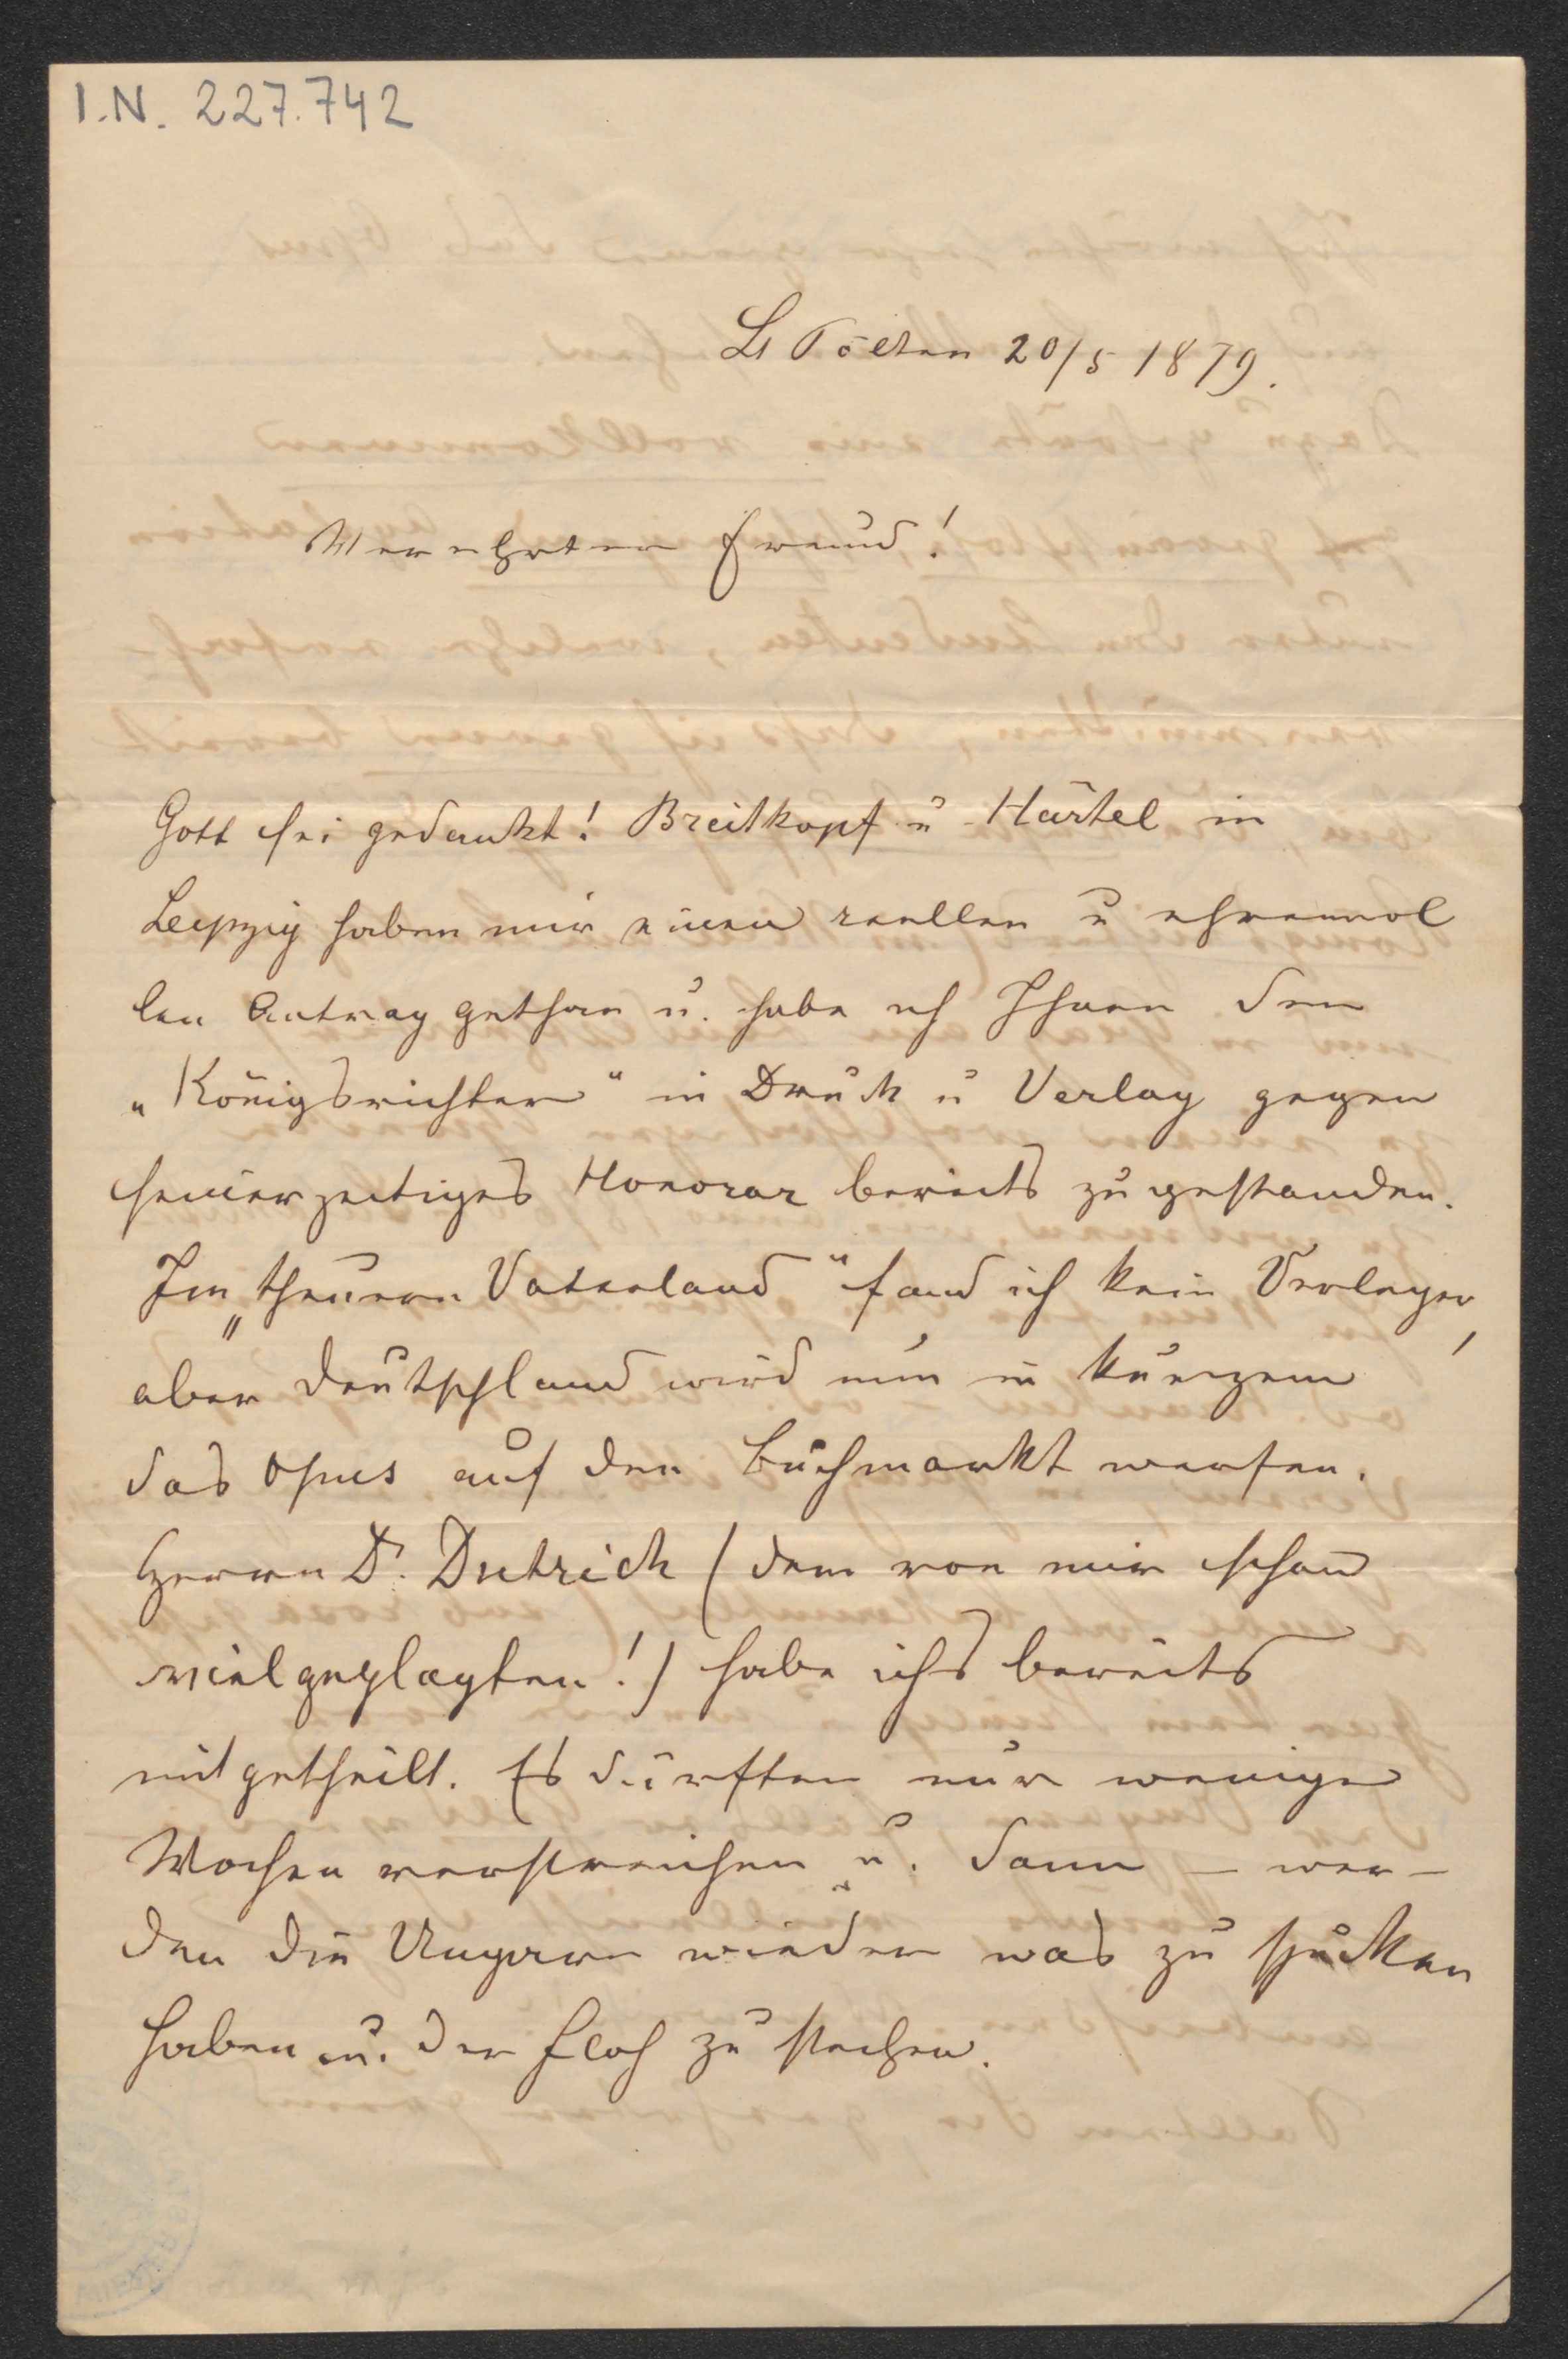 I.N. 227.742
St Pölten 20/5 1879.
Verehrter Freund!
Gott sei gedankt! Breitkopf u Härtel in
Leipzig haben mir einen reellen u ehrenvol
len Antrag gethan u. habe ich Ihnen den
„Königsrichter“ in Druck u Verlag gegen
seinerzeitiges Honorar bereits zugestanden.
Im „theuern Vaterland“ fand ich kein Verleger,
aber Deutschland wird nun in kurzem
das Opus auf den Buchmarkt werfen.
Herrn Dr. Dietrich (dem von mir schon
vielgeplagten!) habe ichs bereits
mitgetheilt. Es dürften nur wenige
Wochen verstreichen u. dann – wer–
den die Ungarn wieder was zu spucken
haben u. der Floh zu stechen.